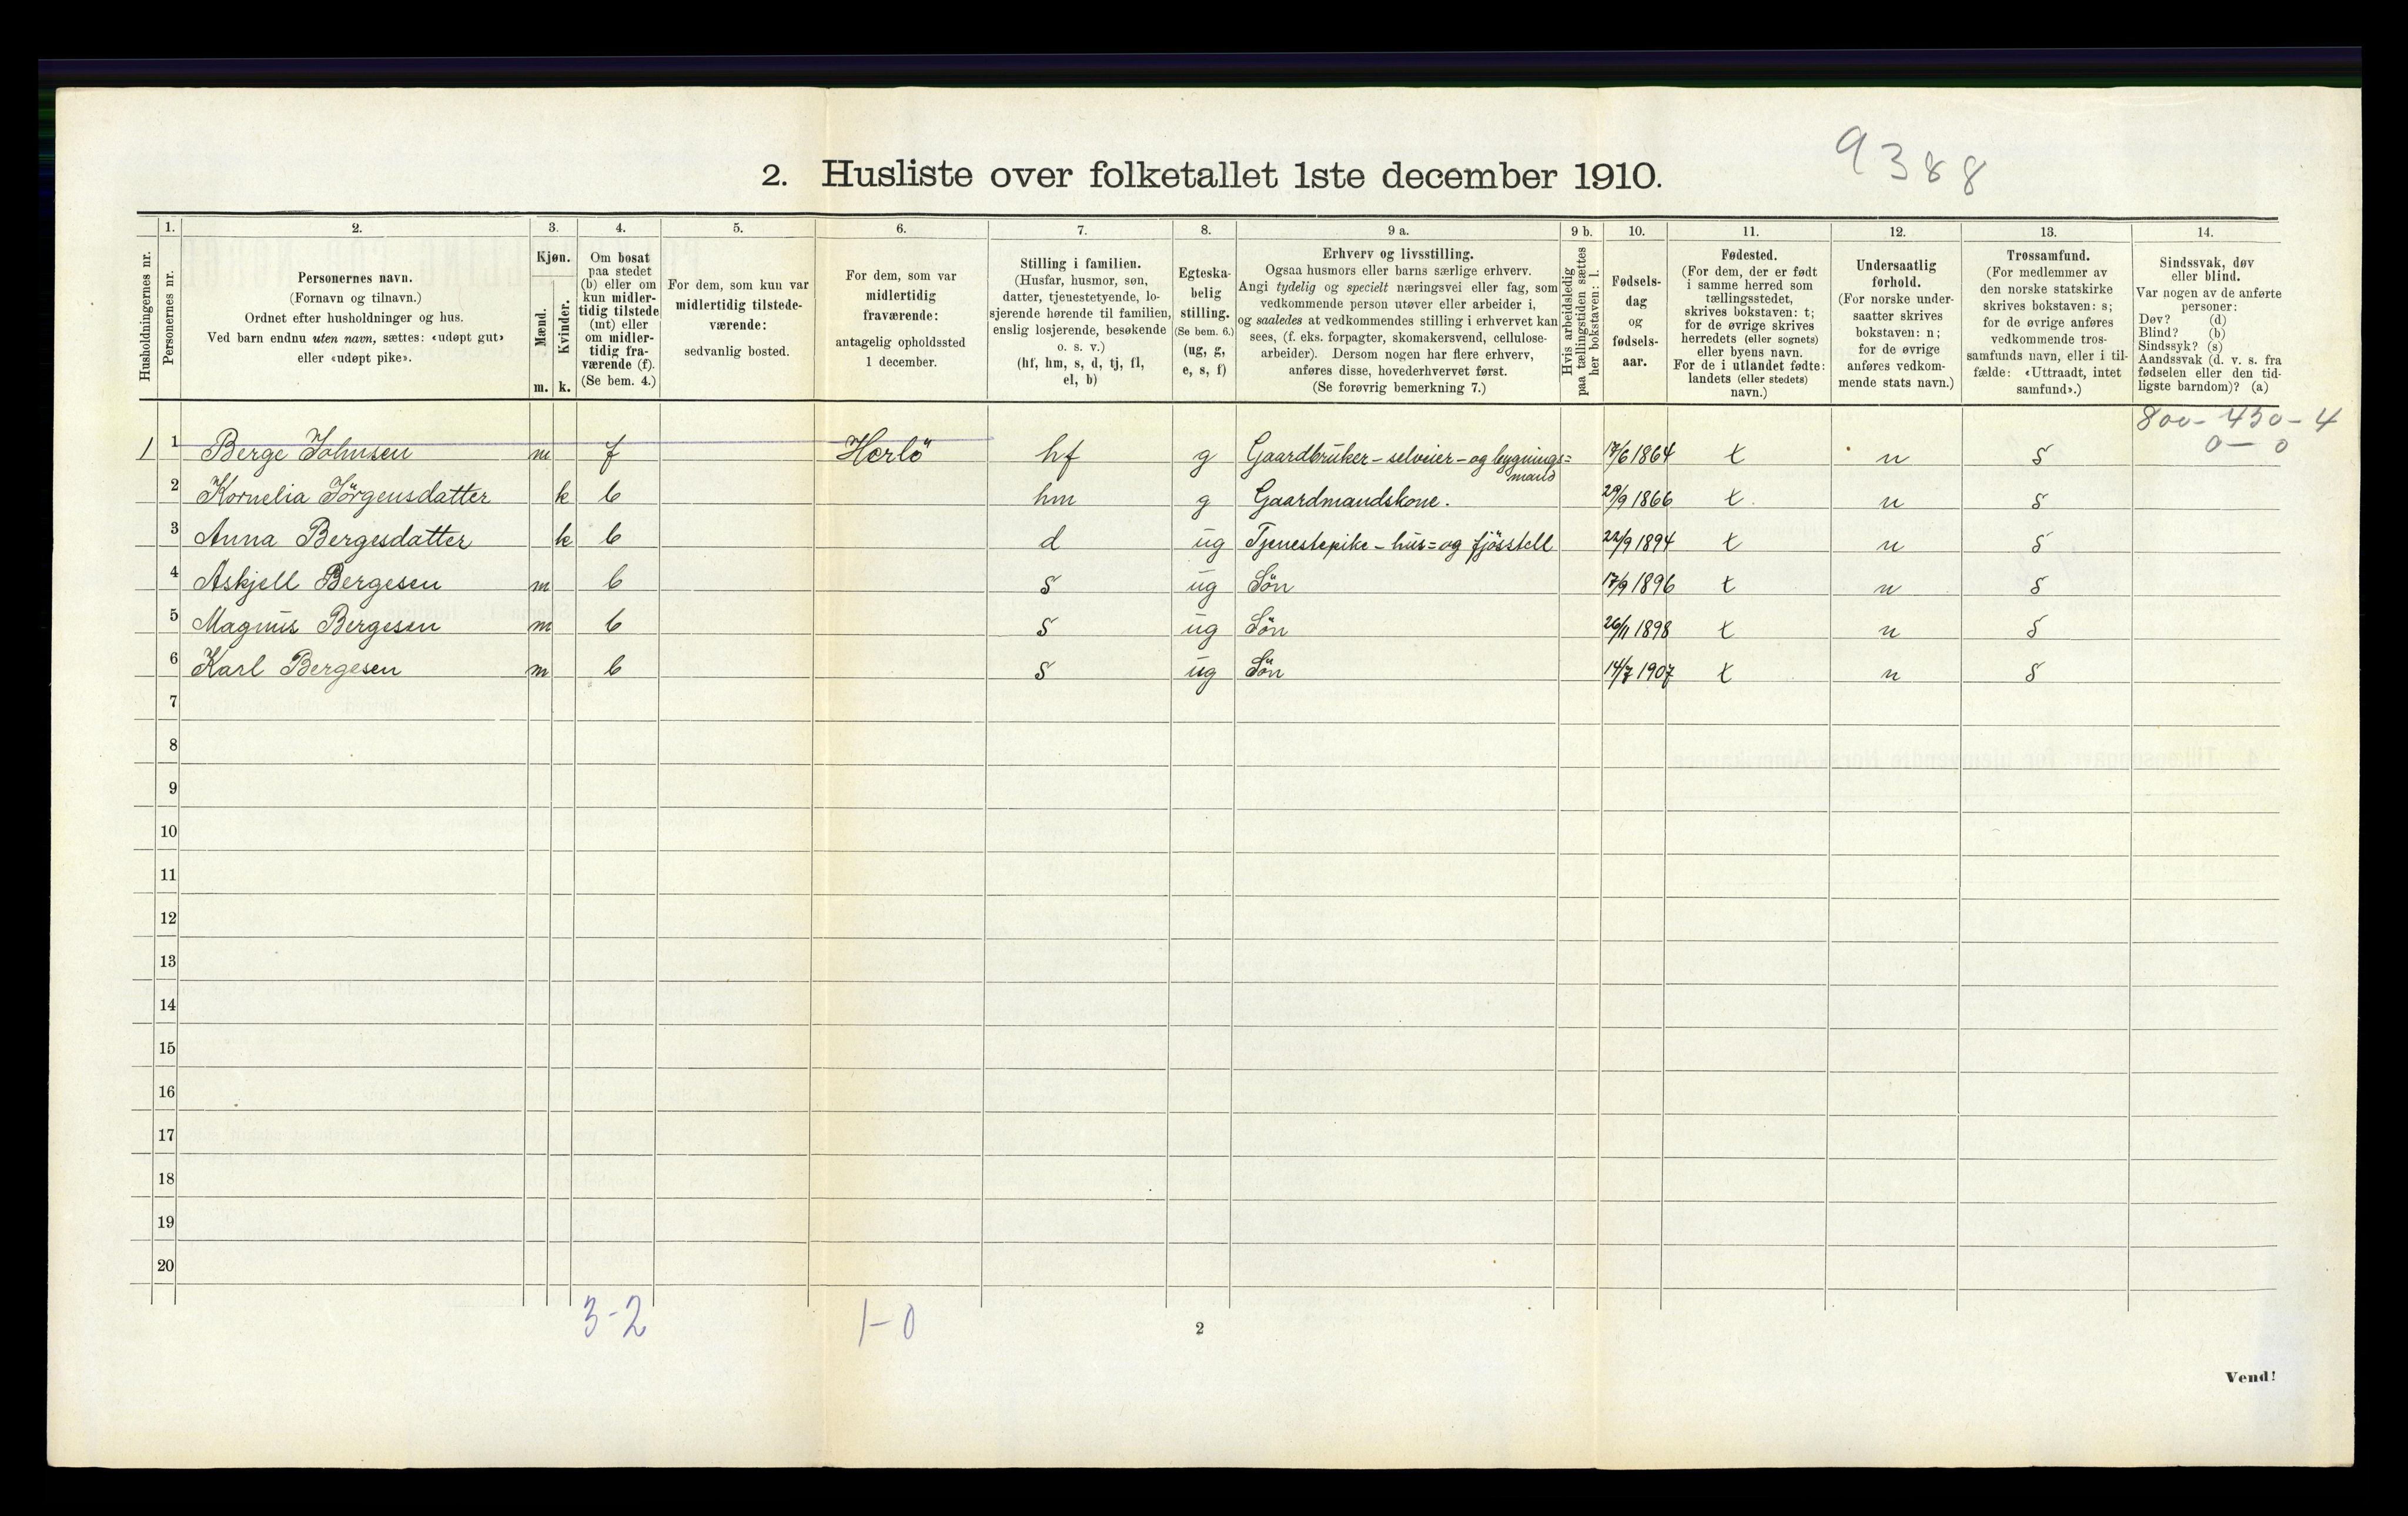 9388
2. Husliste over folketallet 1ste december 1910.
Husholdningernes nr.
1. Personernes nr.
2. Personernes navn.
(Fornavn og tilnavn.)
Ordnet efter husholdninger og hus.
Ved barn endnu uten navn, sættes: «udøpt gut»
eller «udøpt pike».
3. Kjøn.
Mænd. m.
Kvinder. k.
4. Om bosat
paa stedet
(b) eller om
kun midler-
tidig tilstede
(mt) eller
om midler-
tidig fra-
værende (f).
(Se bem. 4.)
5. For dem, som kun var
midlertidig tilstede-
værende:
sedvanlig bosted.
6. For dem, som var
midlertidig
fraværende:
antagelig opholdssted
1 december.
7. Stilling i familien.
(Husfar, husmor, søn,
datter, tjenestetyende, lo-
sjerende hørende til familien,
enslig losjerende, besøkende
o. s. v.)
(hf, hm, s, d, tj, fl,
el, b)
8. Egteska-
belig
stilling.
(Se bem. 6.)
(ug, g,
e, s, f)
9 a. Erhverv og livsstilling.
Ogsaa husmors eller barns særlige erhverv.
Angi tydelig og specielt næringsvei eller fag, som
vedkommende person utøver eller arbeider i,
og saaledes at vedkommendes stilling i erhvervet kan
sees, (f. eks. forpagter, skomakersvend, cellulose-
arbeider). Dersom nogen har flere erhverv,
anføres disse, hovederhvervet først.
(Se forøvrig bemerkning 7.)
9 b. Hvis arbeidsledig
paa tællingstiden sættes
her bokstaven: l.
10. Fødsels-
dag
og
fødsels-
aar.
11. Fødested.
(For dem, der er født
i samme herred som
tællingsstedet,
skrives bokstaven: t;
for de øvrige skrives
herredets (eller sognets)
eller byens navn.
For de i utlandet fødte:
landets (eller stedets)
navn.)
12. Undersaatlig
forhold.
(For norske under-
saatter skrives
bokstaven: n;
for de øvrige
anføres vedkom-
mende stats navn.)
13. Trossamfund.
(For medlemmer av
den norske statskirke
skrives bokstaven: s;
for de øvrige anføres
vedkommende tros-
samfunds navn, eller i til-
fælde: «Uttraadt, intet
samfund».)
14. Sindssvak, døv
eller blind.
Var nogen av de anførte
personer:
Døv? (d)
Blind? (b)
Sindssyk? (s)
Aandssvak (d. v. s. fra
fødselen eller den tid-
ligste barndom)? (a)
800-430-4
0-0
1 1 Berge Johnsen m f Herlö hf g Gaardbruker-selveier-og bygnings=
mand 17/6 1864 t n s
2 Kornelia Jörgensdatter k b hm g Gaardmandskone. 29/9 1866 t. n s
3 Anna Bergesdatter k b d ug Tjenestepike-hus=og fjösstell 22/9 1894 t n s
4 Askjell Bergesen m b s ug Sön 17/9 1896 t n s
5 Magnus Bergesen m b s ug Sön 26/11 1898 t n s
6 Karl Bergesen m b s ug Sön 14/7 1907 t n s
7
8
9
10
11
12
13
14
15
16
17
18
19
20
3-2 1-0
2
Vend!